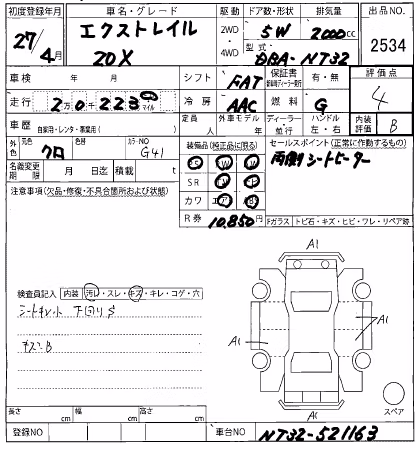 初度登録年月 車名・グレード 駆動 ドア数・形状 排気量 出品NO.
27/4月 エクストレイル 20X 2WD・4WD 5W 2000cc 2534
型式 DBA-NT32
車検 年 月 シフト FAT 保証書 有・無 評価点 4
走行 2万0千223 マイル 冷房 AAC 燃料 G
車歴 自家用・レンタ・事業用( ) 定員 人 外車モデル 年 ディーラー 並行 ハンドル 左・右 内装評価 B
外色 元色 クロ 色替 カラーNO G41 装備品(純正品に限る) セールスポイント(正常に作動するもの)
PS PW 両側シートヒーター
名義変更期限 月 日迄 積載 t SR
カワ エア
注意事項(欠品・修復・不具合箇所および状態) R券 10,850円
Fガラス トビ石・キズ・ヒビ・ワレ・リペア跡
A1
検査員記入 内装 汚れ・スレ・キズ・キレ・コゲ・穴
下回りS
A1 A1
キズ
スペア
長さ cm 幅 cm 高さ cm
登録NO 車台NO NT32-521163